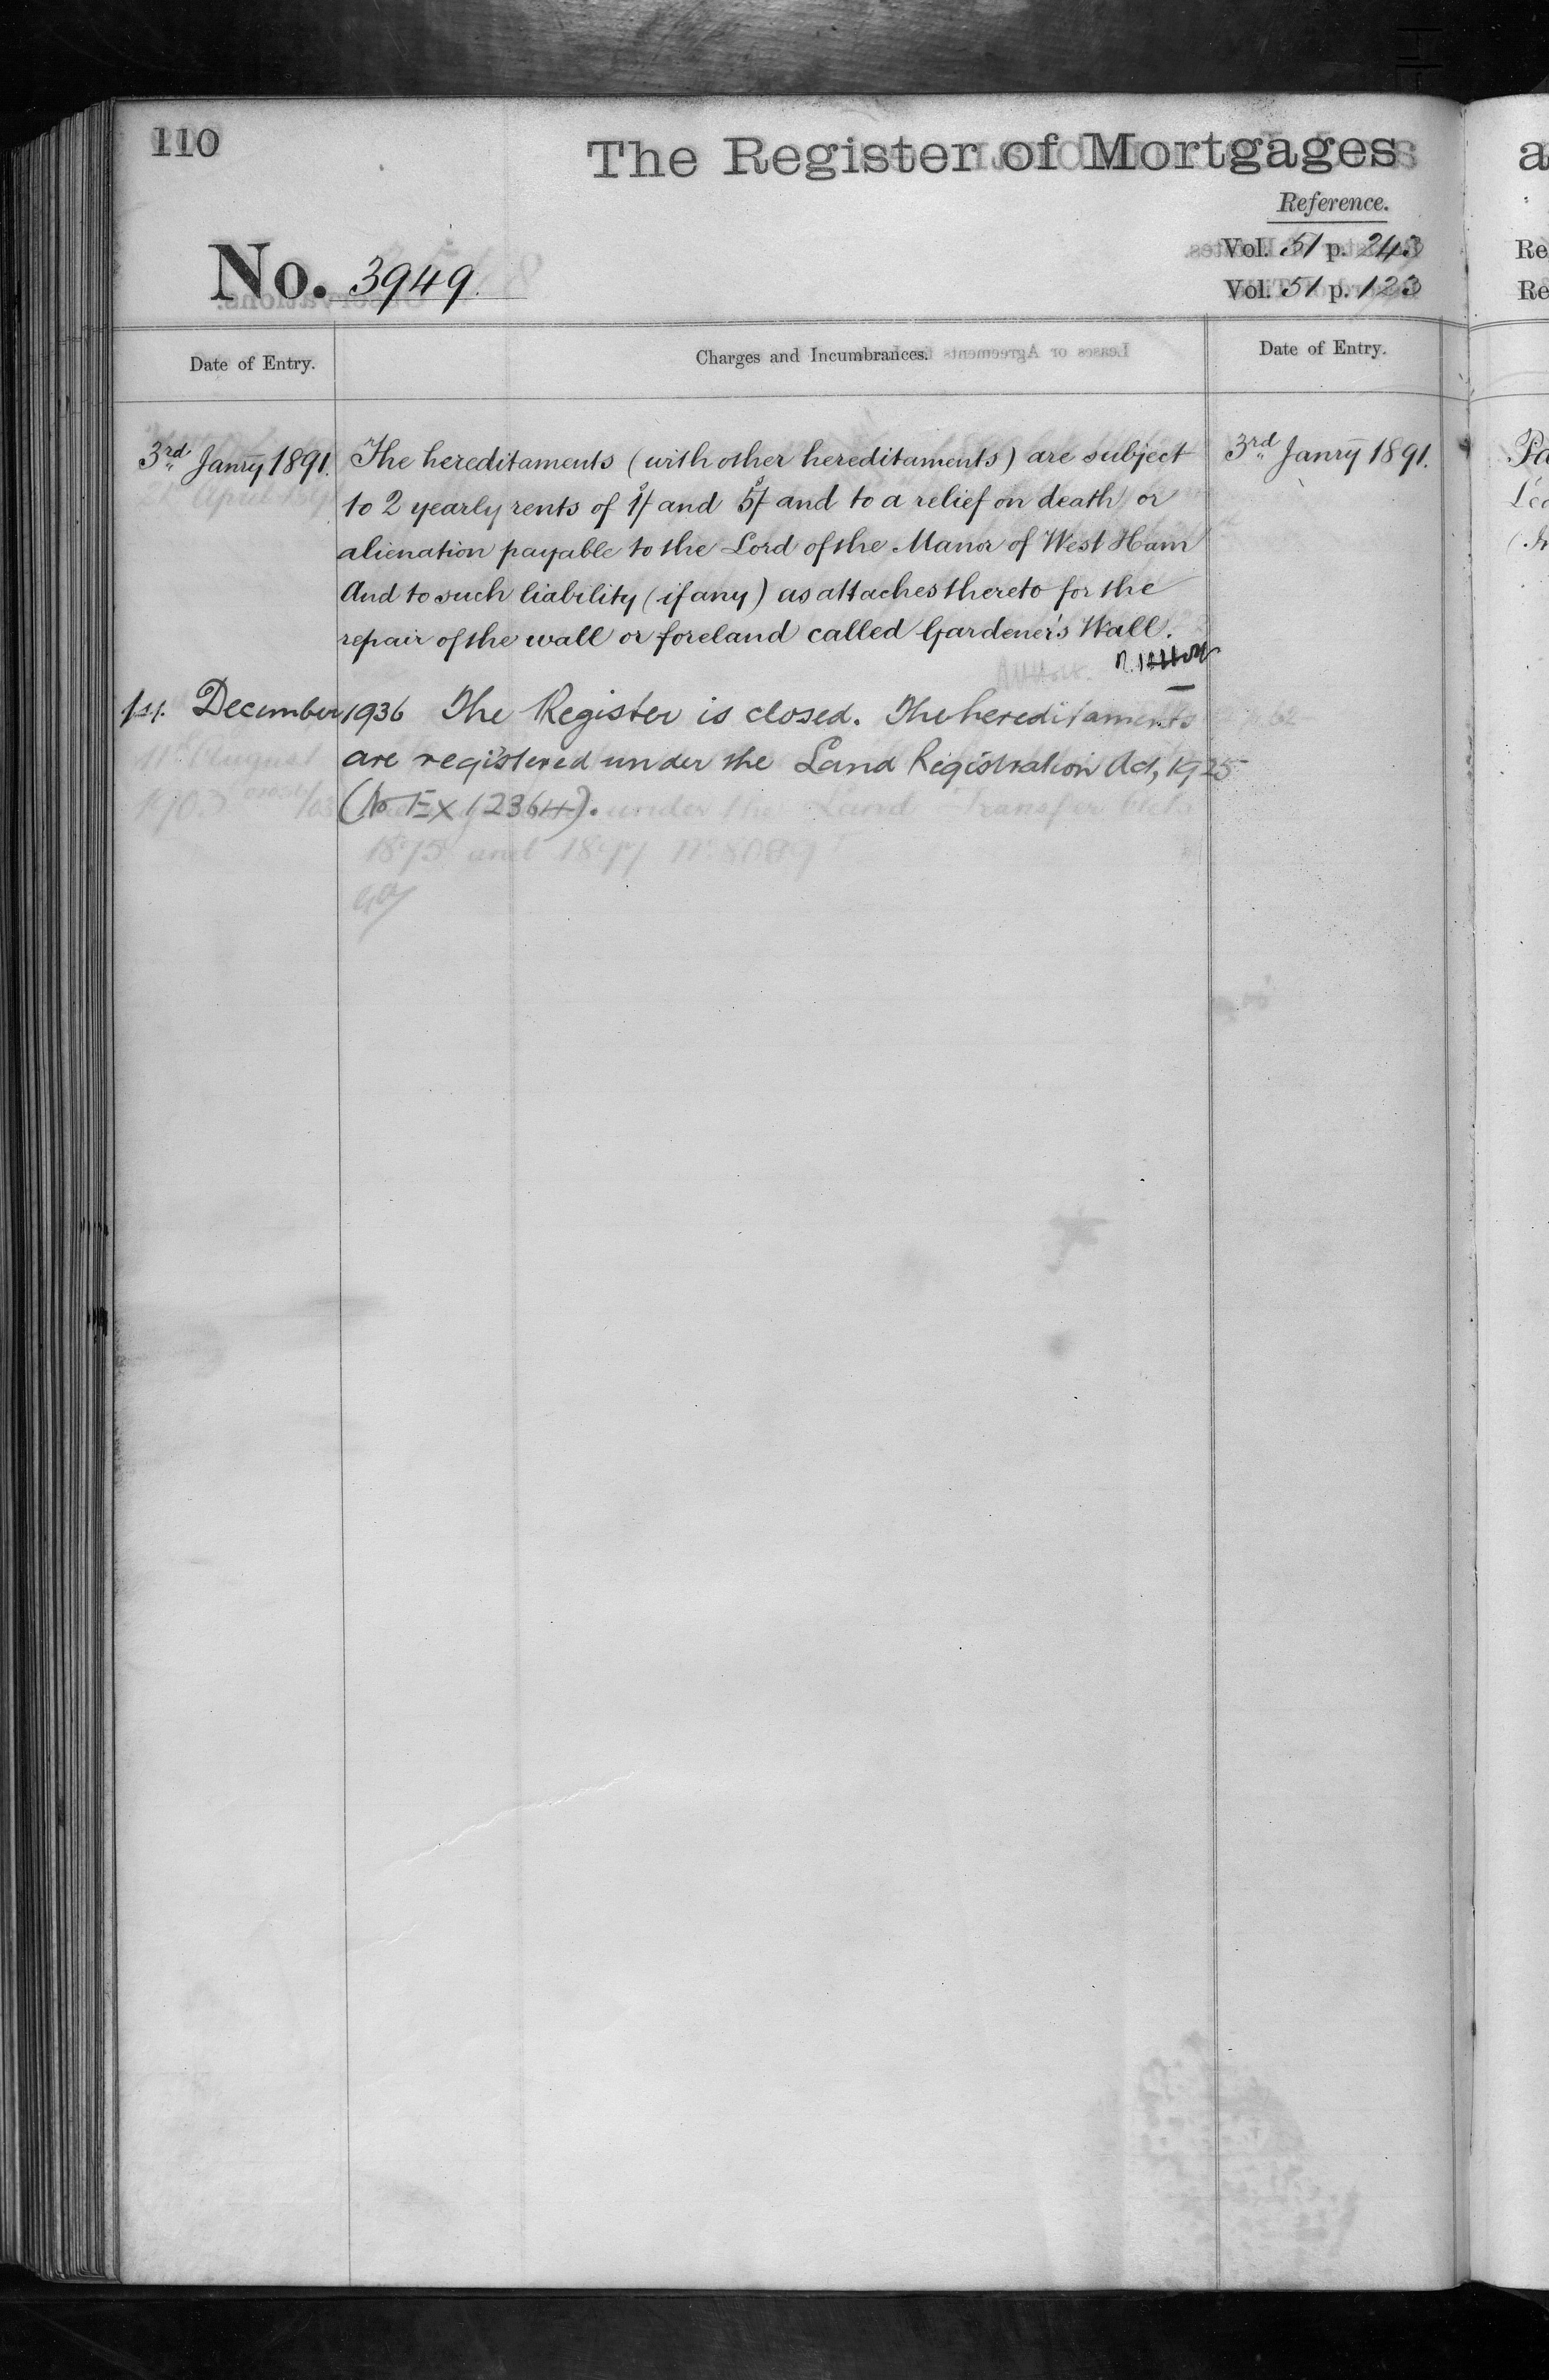 110
The Register of Mortgages
Reference.
No. 3949.
Vol. 51 p. 243
Vol. 51 p. 123
Date of Entry.
Charges and Incumbrances.
Date of Entry.
3rd Janry 1891. The hereditaments (with other hereditaments) are subject
to 2 yearly rents of 1/ and 5/ and to a relief on death or
alienation payable to the Lord of the Manor of West Ham
And to such liability (if any) as attaches thereto for the
repair of the wall or foreland called Gardener's Wall.
3rd Janry 1891.
1st. December 1936 The Register is closed. The hereditaments
are registered under the Land Registration Act, 1925
(No EX 12364).
under the Land Transfer Acts
1875 and 1897
a
Re
Re